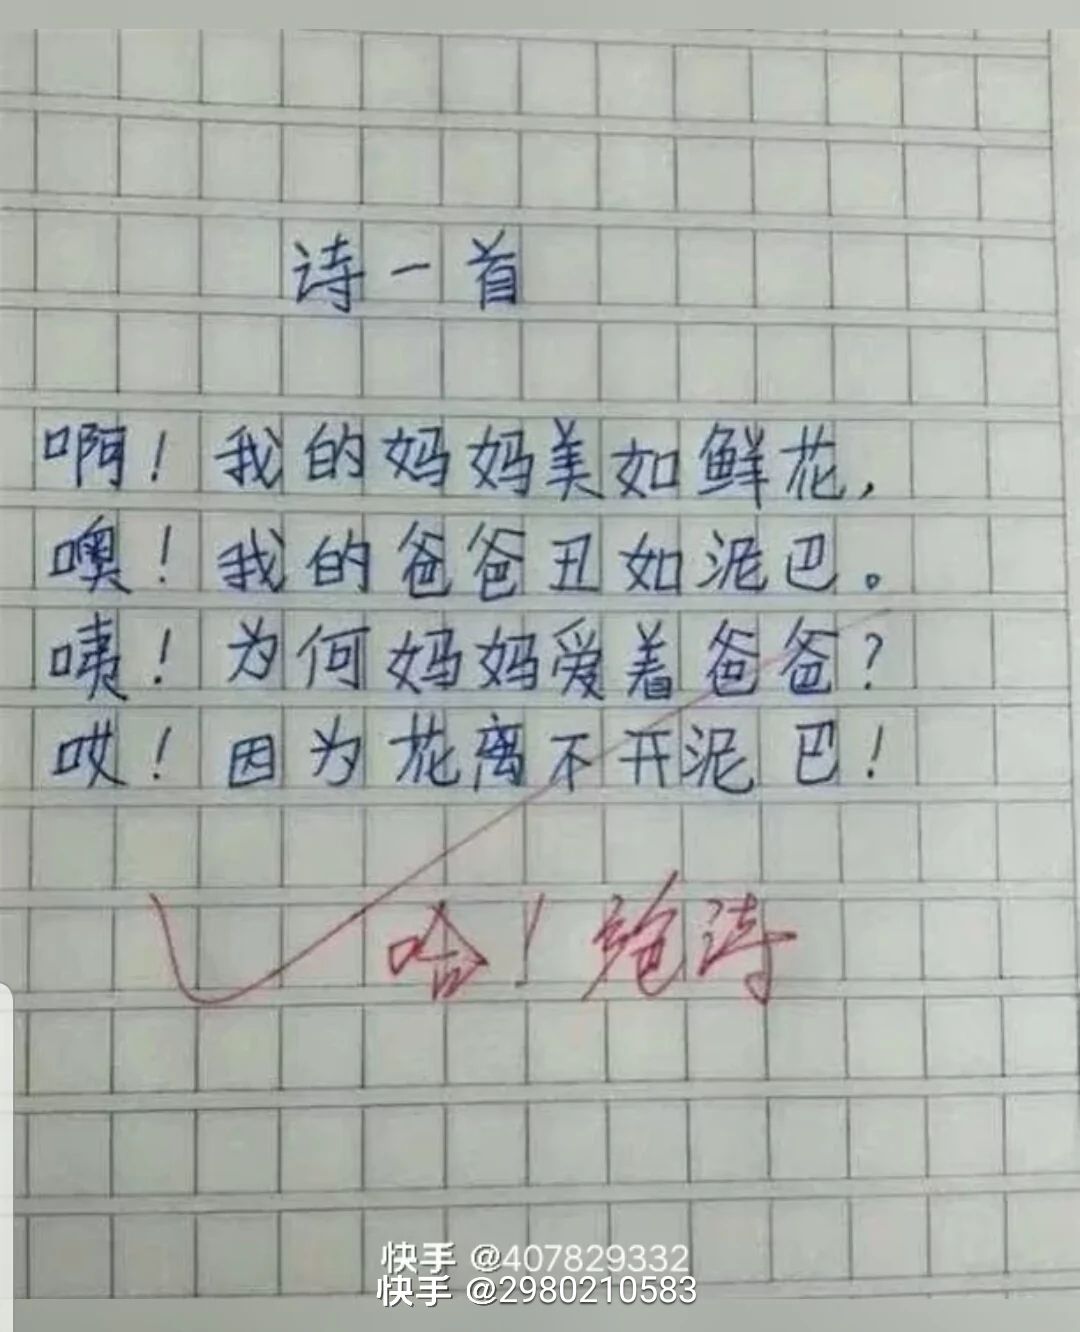 诗一首
啊！我的妈妈美如鲜花，
噢！我的爸爸丑如泥巴。
咦！为何妈妈爱着爸爸？
哎！因为花离不开泥巴！
哈！绝诗
快手 @407829332
快手 @2980210583